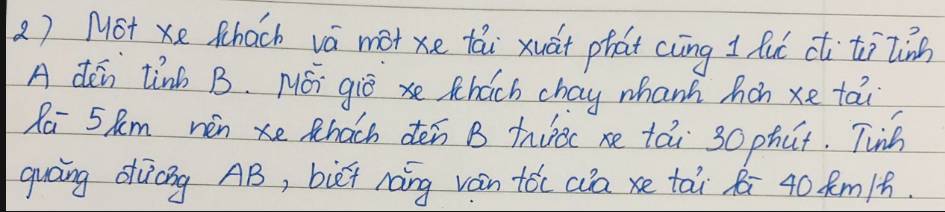 2) Một xe khách và một xe tải xuất phát cùng 1 lúc đi từ tỉnh
A đến tỉnh B. Mỗi giờ xe khách chạy nhanh hơn xe tải
là 5km nên xe khách đến B trước xe tải 30 phút. Tính
quãng đường AB, biết rằng vận tốc của xe tải là 40km/h.